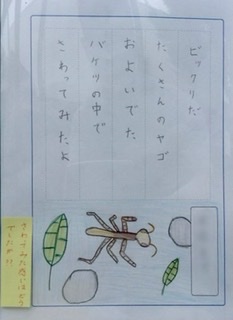 ビックリだ
たくさんのヤゴ
およいでた
バケツの中で
さわってみたよ
さわってみた感じはどう
でしたか!!